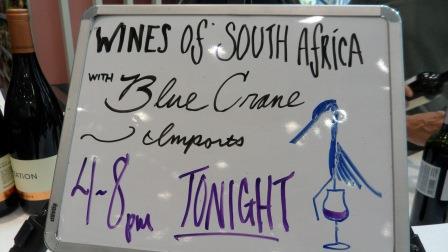 WINES of SOUTH AfRICA
WITH Blue Crane
~ Imports
4~8pm TONIGHT
ATION